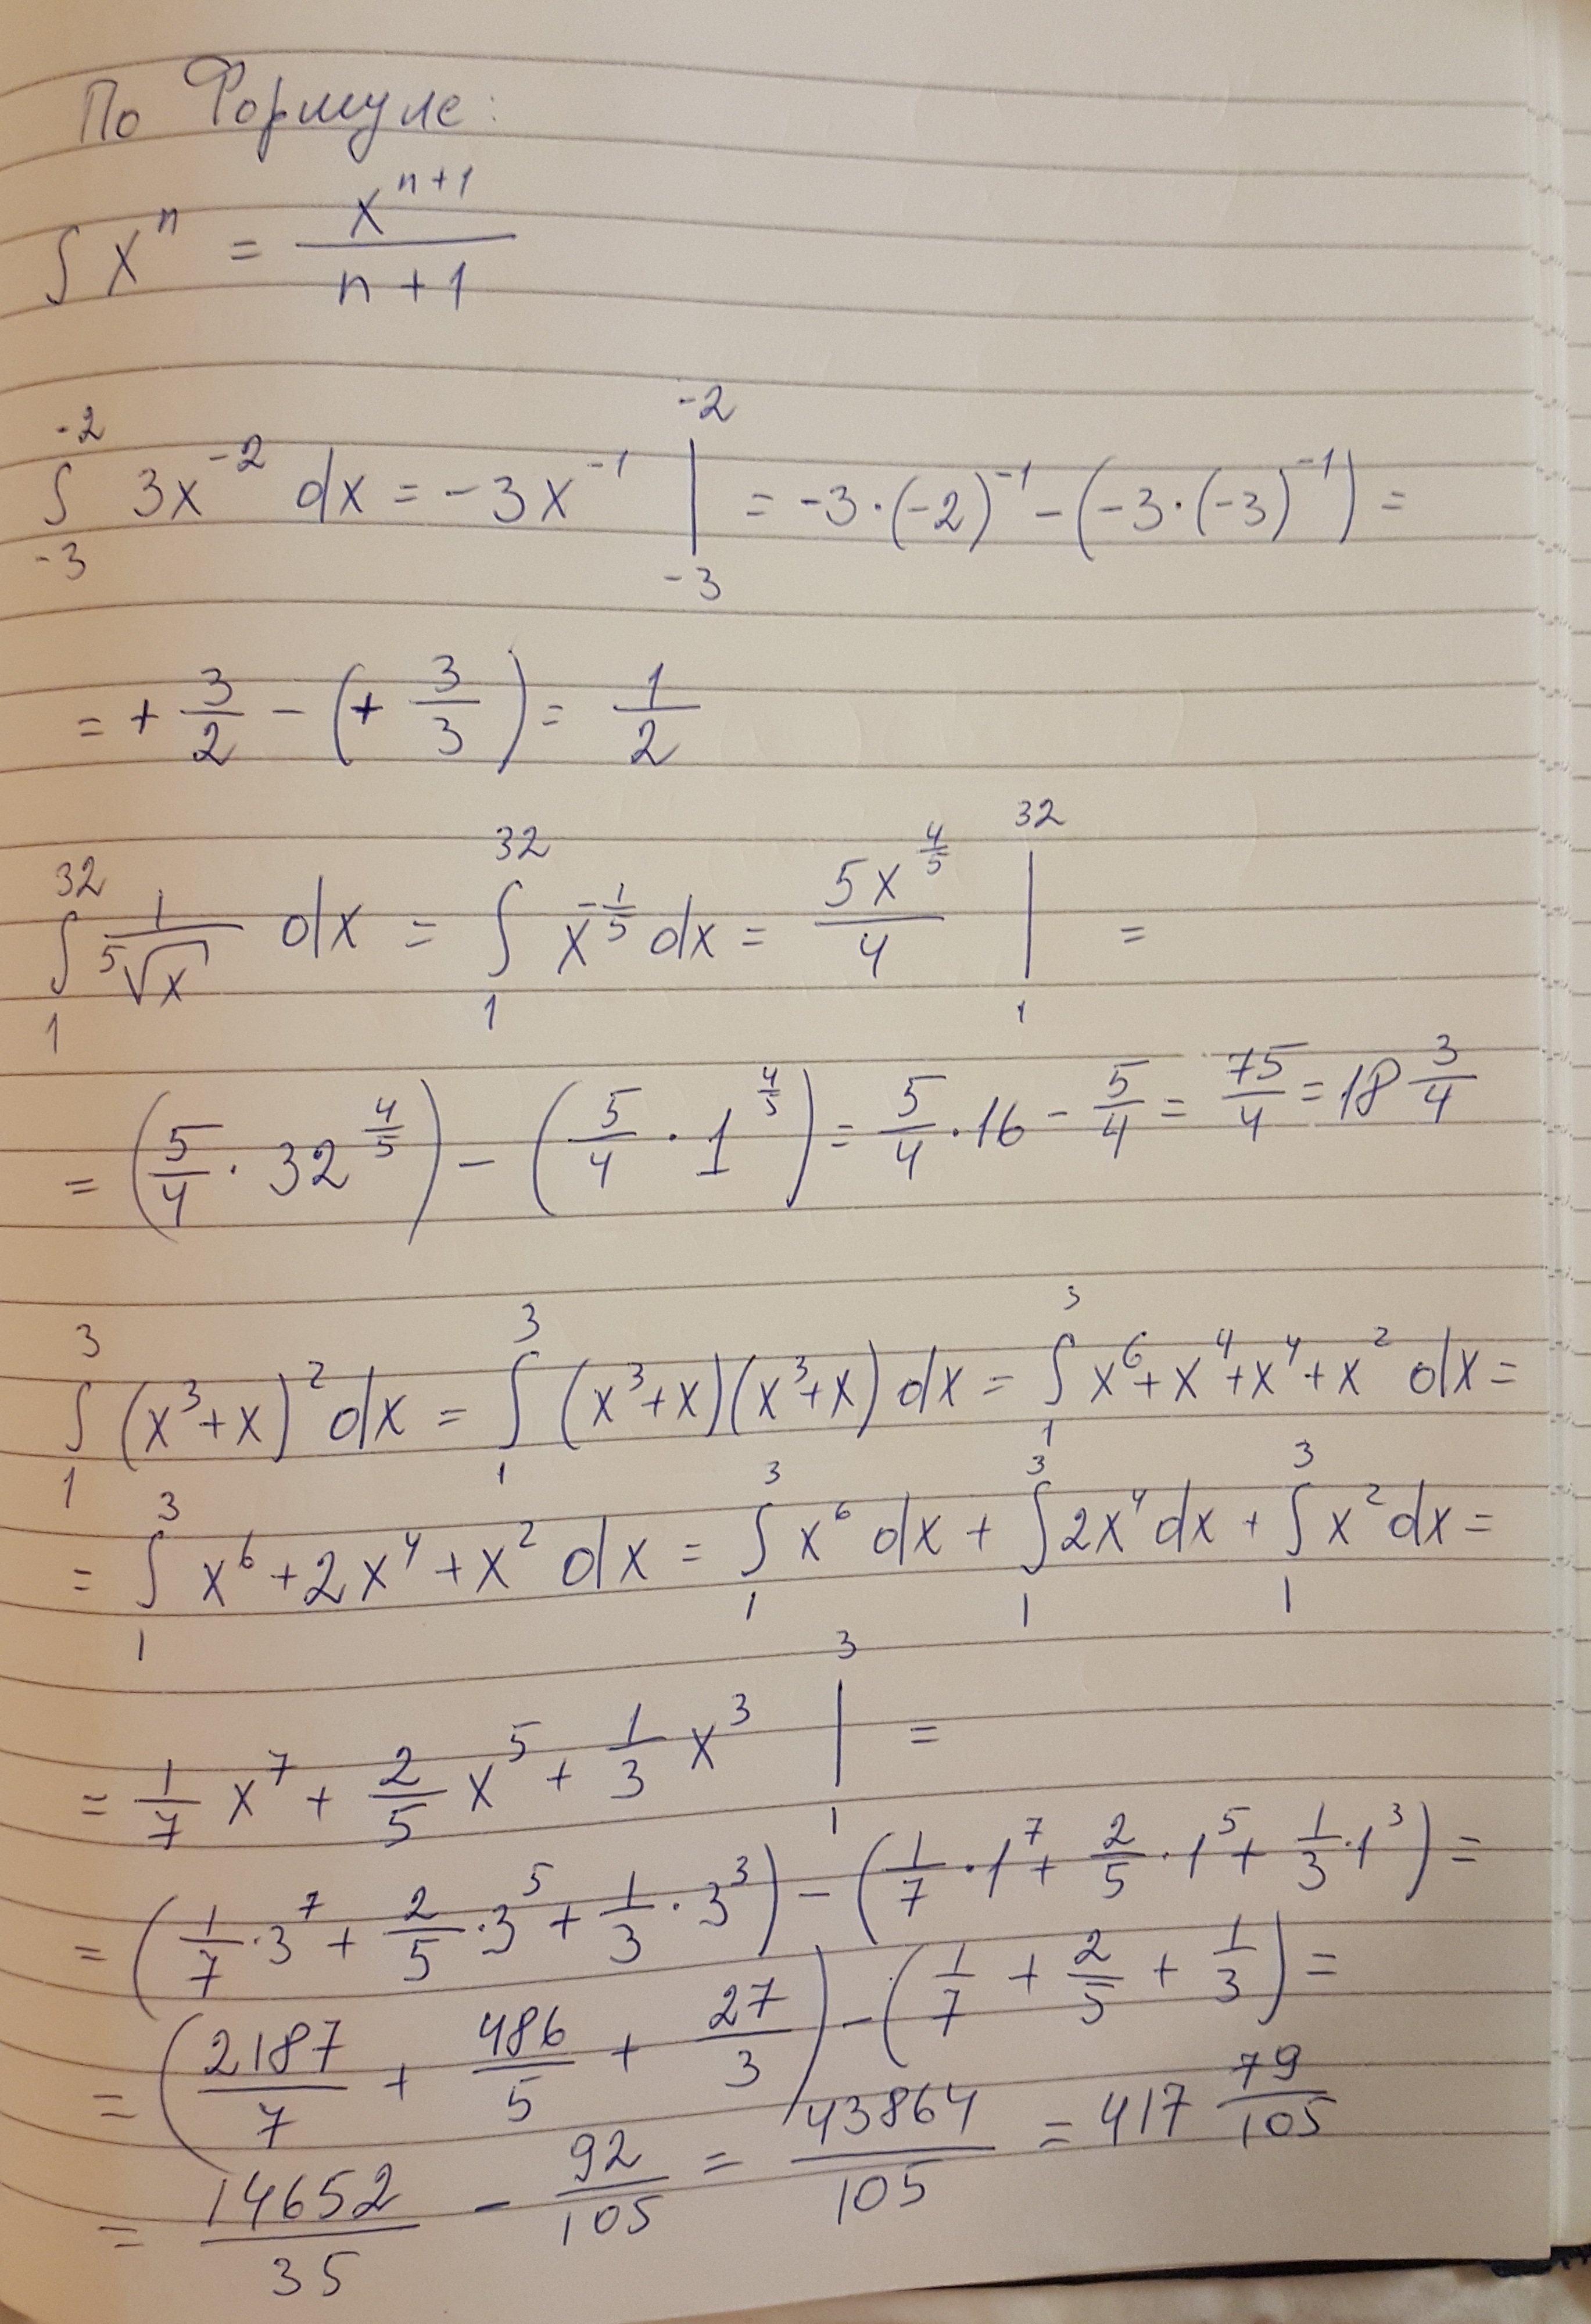 По Формуле:
∫ xⁿ = x^(n+1) / (n+1)
∫_{-3}^{-2} 3x^{-2} dx = -3x^{-1} |_{-3}^{-2} = -3·(-2)^{-1} - (-3·(-3)^{-1}) =
= + 3/2 - (+ 3/3) = 1/2
∫_{1}^{32} 1/⁵√x dx = ∫_{1}^{32} x^{-1/5} dx = 5x^{4/5}/4 |_{1}^{32} =
= (5/4 · 32^{4/5}) - (5/4 · 1^{4/5}) = 5/4 · 16 - 5/4 = 75/4 = 18 3/4
∫_{1}^{3} (x³+x)² dx = ∫_{1}^{3} (x³+x)(x³+x) dx = ∫_{1}^{3} x⁶+x⁴+x⁴+x² dx =
= ∫_{1}^{3} x⁶+2x⁴+x² dx = ∫_{1}^{3} x⁶ dx + ∫_{1}^{3} 2x⁴ dx + ∫_{1}^{3} x² dx =
= 1/7 x⁷ + 2/5 x⁵ + 1/3 x³ |_{1}^{3} =
= (1/7 · 3⁷ + 2/5 · 3⁵ + 1/3 · 3³) - (1/7 · 1⁷ + 2/5 · 1⁵ + 1/3 · 1³) =
= (2187/7 + 486/5 + 27/3) - (1/7 + 2/5 + 1/3) =
= 14652/35 - 92/105 = 43864/105 = 417 79/105